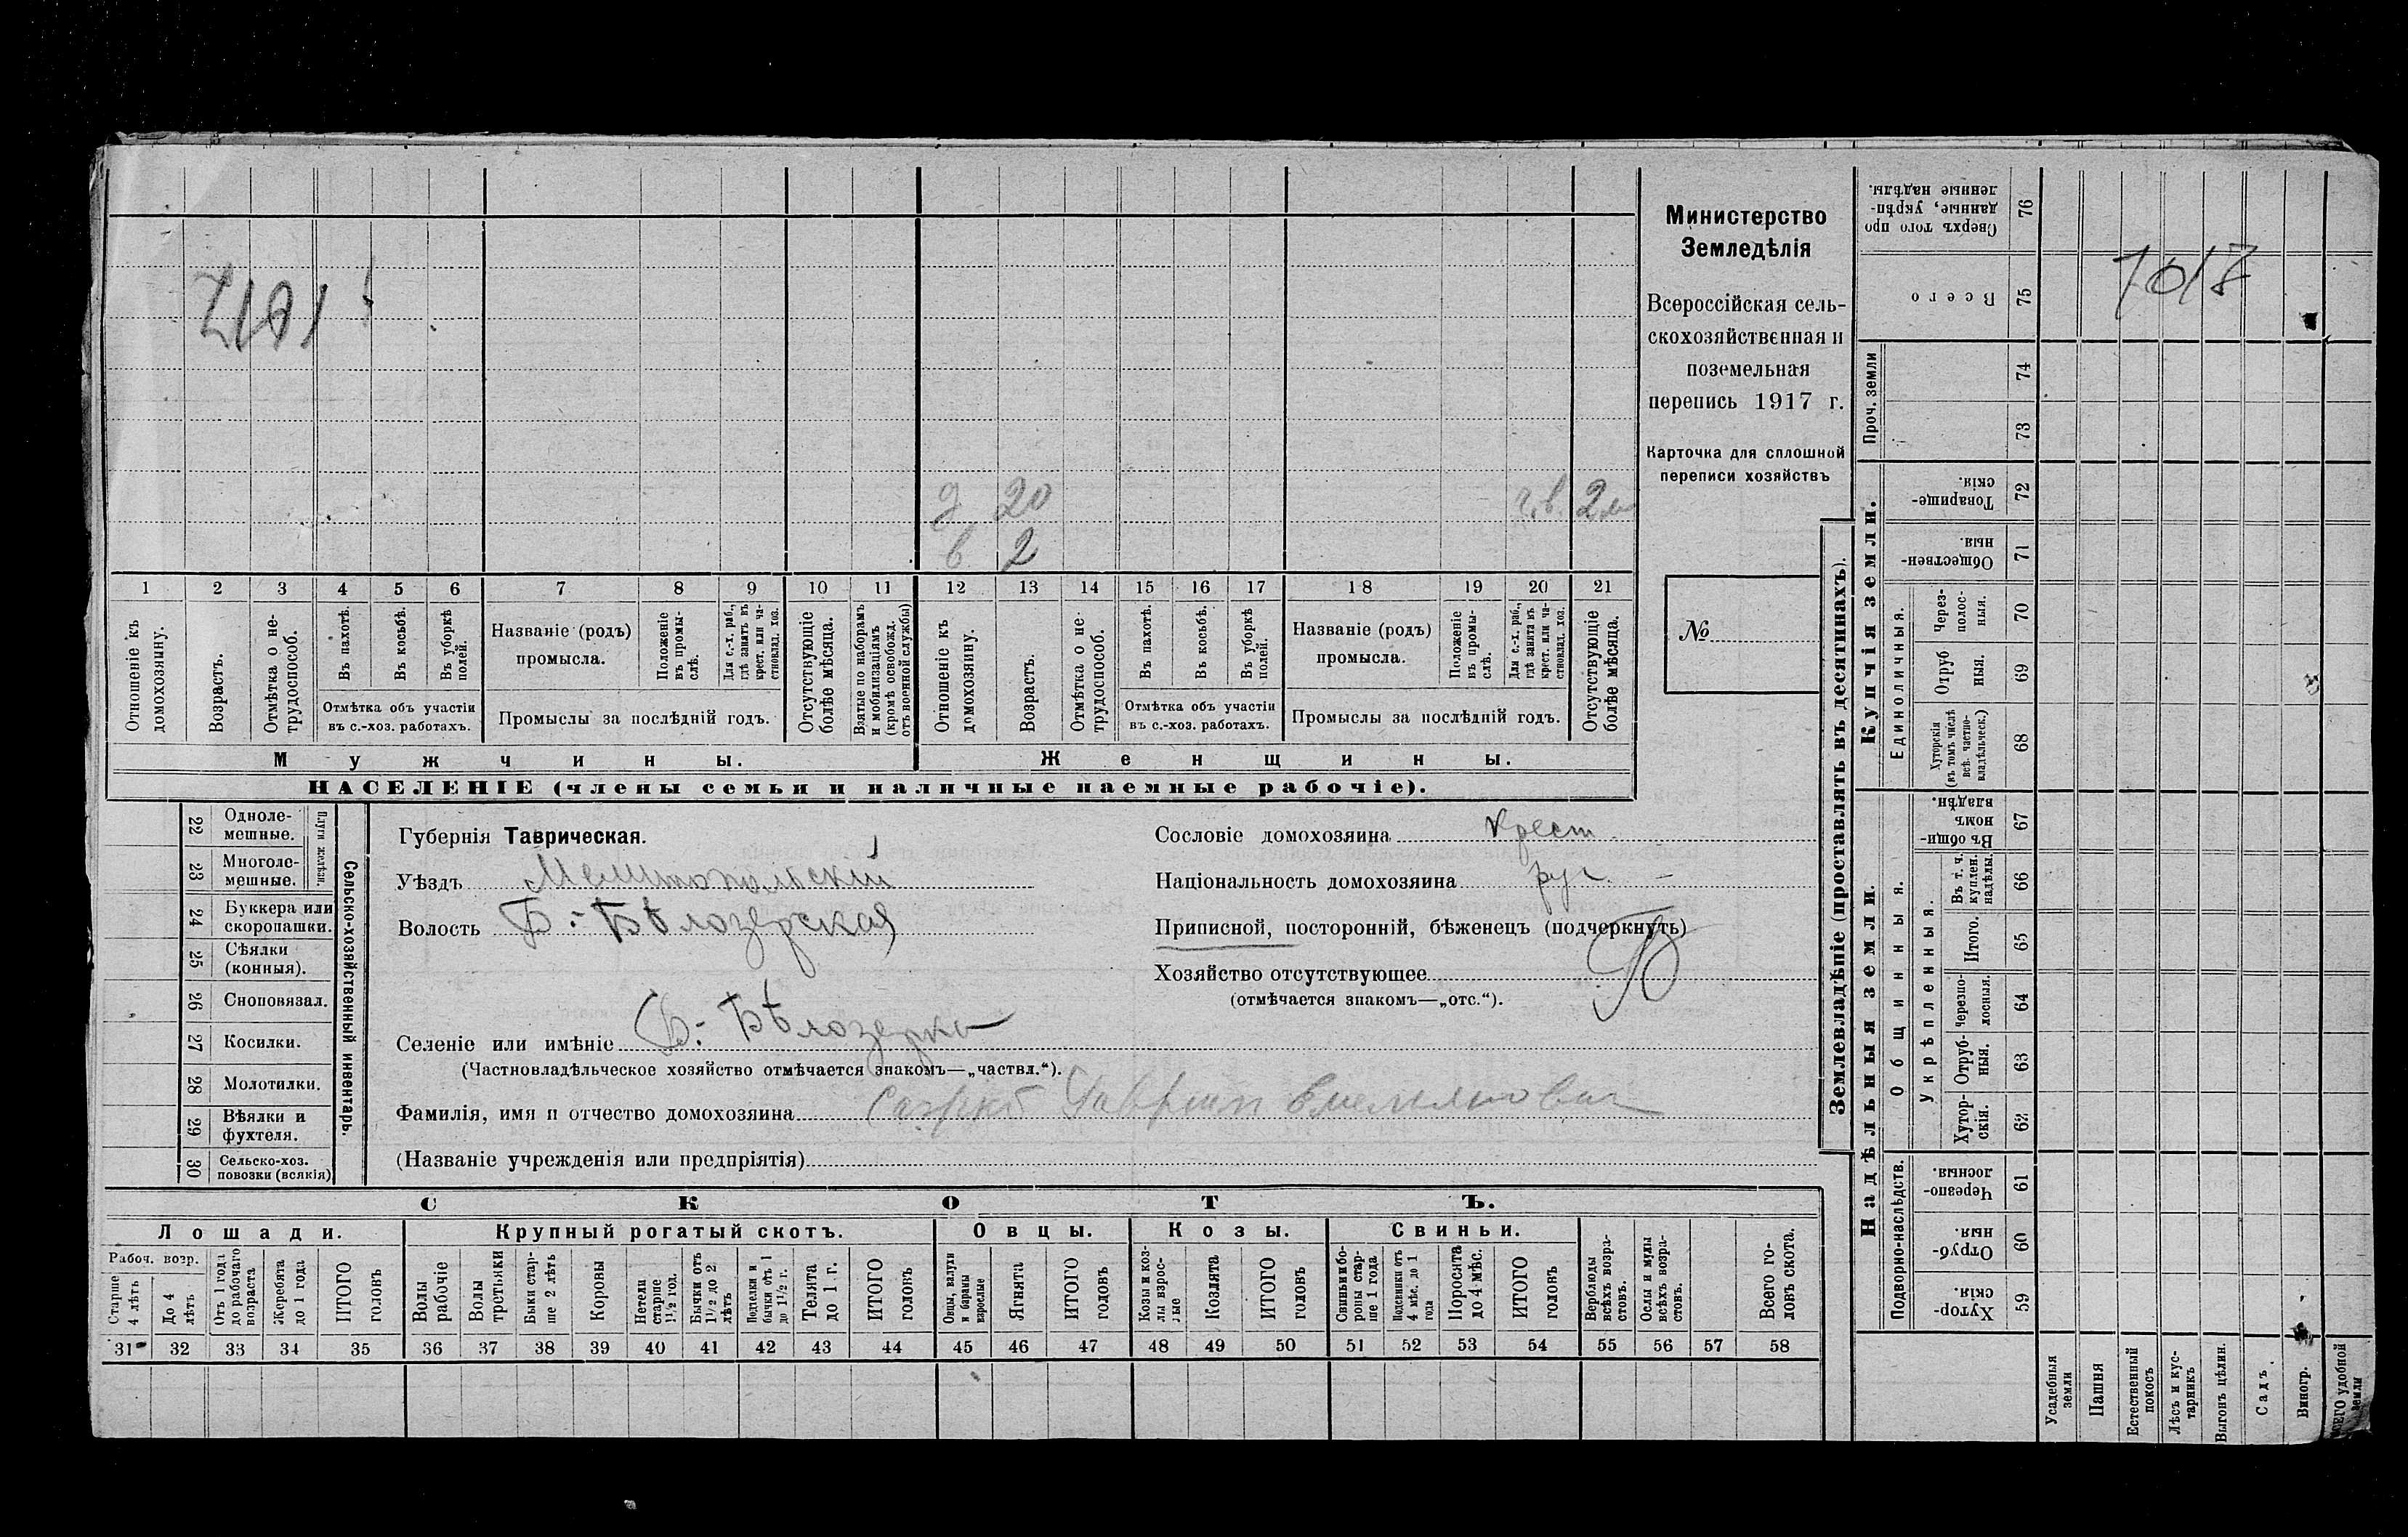 1 2 3 4 5 6 7 8 9 10 11 12 13 14 15 16 17 18 19 20 21
д. 20 2 м
в 2
Отношеніе къ домохозяину.
Возрастъ.
Отмѣтка о нетрудоспособ.
Въ пахотѣ.
Въ косьбѣ.
Въ уборкѣ полей.
Отмѣтка объ участіи
въ с.-хоз. работахъ.
Названіе (родъ)
промысла.
Положеніе въ промыслѣ.
Для с.-х. раб., гдѣ занятъ въ крест. или частновлад. хоз.
Промыслы за послѣдній годъ.
Отсутствующіе болѣе мѣсяца.
Взятые по наборамъ и мобилизаціямъ (кромѣ освобожд. отъ военной службы)
Отношеніе къ домохозяину.
Возрастъ.
Отмѣтка о нетрудоспособ.
Въ пахотѣ.
Въ косьбѣ.
Въ уборкѣ полей.
Отмѣтка объ участіи
въ с.-хоз. работахъ.
Названіе (родъ)
промысла.
Положеніе въ промыслѣ.
Для с.-х. раб., гдѣ занята въ крест. или частновлад. хоз.
Промыслы за послѣдній годъ.
Отсутствующіе болѣе мѣсяца.
Мужчины.
Женщины.
НАСЕЛЕНІЕ (члены семьи и наличные наемные рабочіе).
Министерство
Земледѣлія
Всероссійская сель-
скохозяйственная и
поземельная
перепись 1917 г.
Карточка для сплошной
переписи хозяйствъ
№
22 Одноле-
мешные.
23 Многоле-
мешные.
Плуги желѣзн.
24 Буккера или
скоропашки.
25 Сѣялки
(конныя).
26 Сноповязал.
27 Косилки.
28 Молотилки.
29 Вѣялки и
фухтеля.
30 Сельско-хоз.
повозки (всякія)
Сельско-хозяйственный инвентарь.
Губернія Таврическая.
Уѣздъ Мелитопольскій
Волость Б.-Бѣлозерская
Селеніе или имѣніе Б.-Бѣлозерка
(Частновладѣльческое хозяйство отмѣчается знакомъ—„частвл.“).
Фамилія, имя и отчество домохозяина
(Названіе учрежденія или предпріятія)
Сословіе домохозяина крест.
Національность домохозяина рус.
Приписной, посторонній, бѣженецъ (подчеркнуть)
Хозяйство отсутствующее
(отмѣчается знакомъ—„отс.“).
СКОТЪ.
Лошади.
Крупный рогатый скотъ.
Овцы.
Козы.
Свиньи.
Рабоч. возр.
Старше 4 лѣтъ
До 4 лѣтъ
Отъ 1 года до рабочаго возраста
Жеребята до 1 года
ИТОГО головъ
Волы рабочіе
Волы третьяки
Быки старше 2 лѣтъ
Коровы
Нетели старше 1 1/2 год.
Бычки отъ 1 1/2 до 2 лѣтъ
Подтелки и бычки отъ 1 до 1 1/2 г.
Телята до 1 г.
ИТОГО головъ
Овцы, валухи и бараны взрослые
Ягнята
ИТОГО головъ
Козы и козлы взрослые
Козлята
ИТОГО головъ
Свиньи и бороны старше 1 года
Подсвинки отъ 4 мѣс. до 1 года
Поросята до 4 мѣс.
ИТОГО головъ
Верблюды всѣхъ возрастовъ.
Ослы и мулы всѣхъ возрастовъ.
Всего головъ скота.
31 32 33 34 35 36 37 38 39 40 41 42 43 44 45 46 47 48 49 50 51 52 53 54 55 56 57 58
Землевладѣніе (проставлять въ десятинахъ).
Купчія земли.
Надѣльныя земли.
Проч. земли
Единоличныя.
Общинныя.
Укрѣпленныя.
Подворно-наслѣдств.
Сверхъ того проданные, укрѣпленные надѣлы. 76
Всего 75
74
73
Товарищескія. 72
Общественныя. 71
Черезполосныя. 70
Отрубныя. 69
Хуторскія (въ томъ числѣ всѣ частновладѣльческ.) 68
Въ общинномъ владѣн. 67
Въ т. ч. куплен. надѣлы. 66
Итого. 65
Черезполосныя. 64
Отрубныя. 63
Хуторскія. 62
Черезполосныя. 61
Отрубныя. 60
Хуторскія. 59
Усадебныя земли
Пашня
Естественный покосъ
Лѣсъ и кустарникъ
Выгонъ цѣлин.
Садъ.
Виногр.
ВСЕГО удобной земли